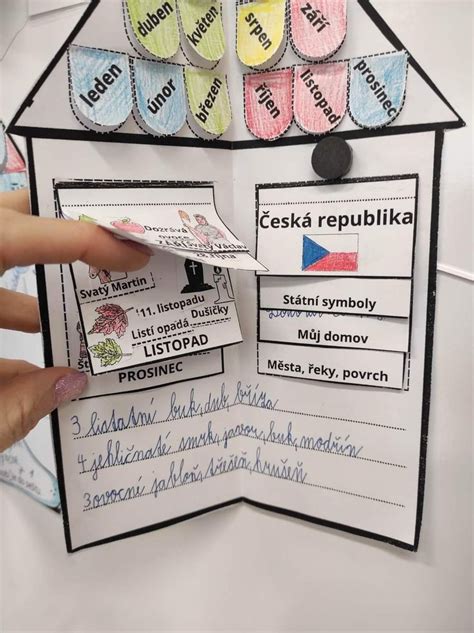 duben
květen
srpen
září
leden
únor
březen
říjen
listopad
prosinec
Dozrává
ovoce
ZÁŘÍ
Václav
28. října
Svatý Martin
11. listopadu
Dušičky
Listí opadá
LISTOPAD
PROSINEC
Česká republika
Státní symboly
Můj domov
Města, řeky, povrch
3 listatní buk, dub, bříza
4 jehličnaté smrk, javor, buk, modřín
3 ovocne jabloň, třešeň, hrušeň